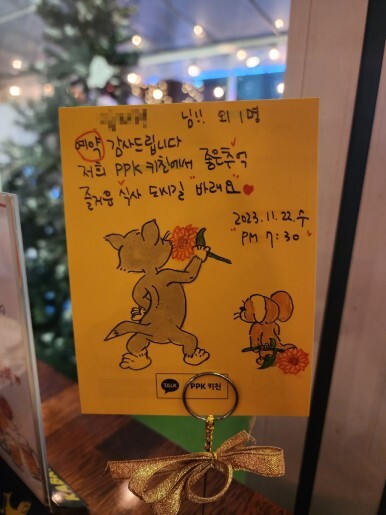 님!! 외 1명
예약 감사드립니다
저희 PPK 키친에서 좋은추억
즐거운 식사 되시길 바래요
2023.11.22.수
"PM 7:30"
TALK PPK 키친